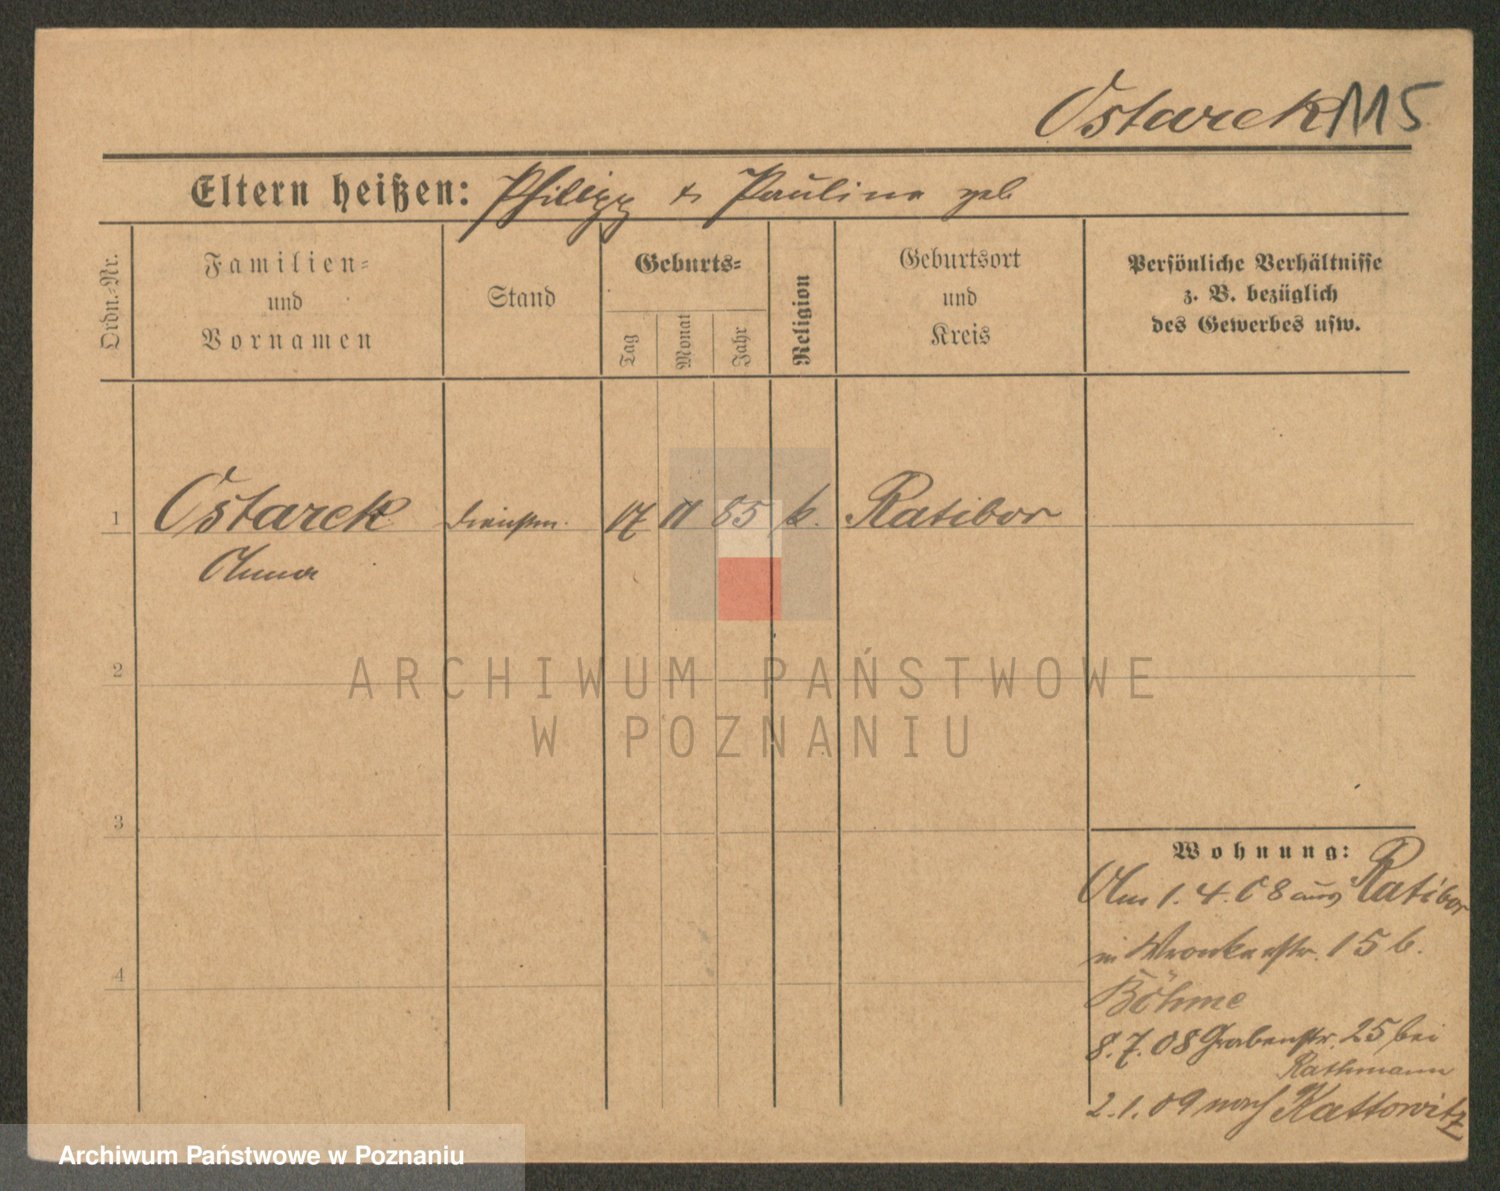 Ostarek 115
Eltern heißen: Philipp & Pauline geb
Ordn.-Nr.
Familien-
und
Vornamen
Stand
Geburts-
Tag
Monat
Jahr
Religion
Geburtsort
und
Kreis
Persönliche Verhältnisse
z. B. bezüglich
des Gewerbes usw.
1 Ostarek 17 11 85 k. Ratibor
Anna
2
3
4
Wohnung:
Am 1.4.08 aus Ratibor
in Wronkerstr. 15 b.
Böhme
8.7.08 Grabenstr. 25 bei
Rathmann
2.1.09 nach Kattowitz
ARCHIWUM PAŃSTWOWE
W POZNANIU
Archiwum Państwowe w Poznaniu